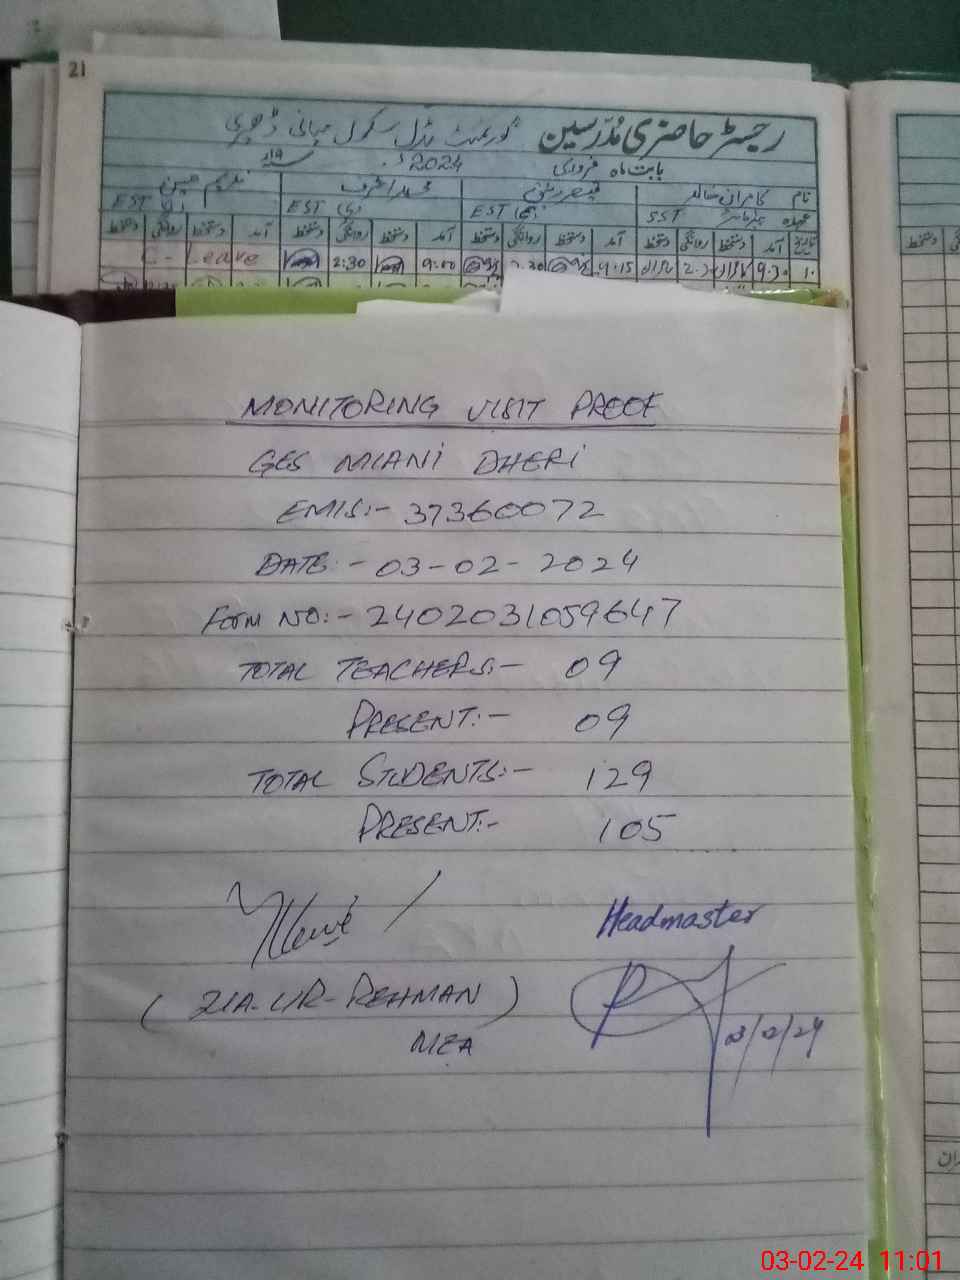 21
رجسٹر حاضری مُدرسین گورنمنٹ مڈل سکول میانی ڈھیری
بابت ماہ فروری 2024ء
نام کامران خالد قیصر محمد اشرف ندیم حسین
عہدہ SST EST EST EST
تاریخ آمد دستخط روانگی دستخط آمد دستخط روانگی دستخط آمد دستخط روانگی دستخط آمد دستخط روانگی دستخط
1. 9:30 کامران کامران 9:15 2.30 9:00 2:30 C - Leave
MONITORING VISIT PROOF
GES MIANI DHERI
EMIS:- 37360072
DATE:- 03-02-2024
FORM NO:- 2402031059647
TOTAL TEACHERS:- 09
PRESENT:- 09
TOTAL STUDENTS:- 129
PRESENT:- 105
Headmaster
(ZIA-UR-REHMAN)
MEA
03/02/24
03-02-24 11:01